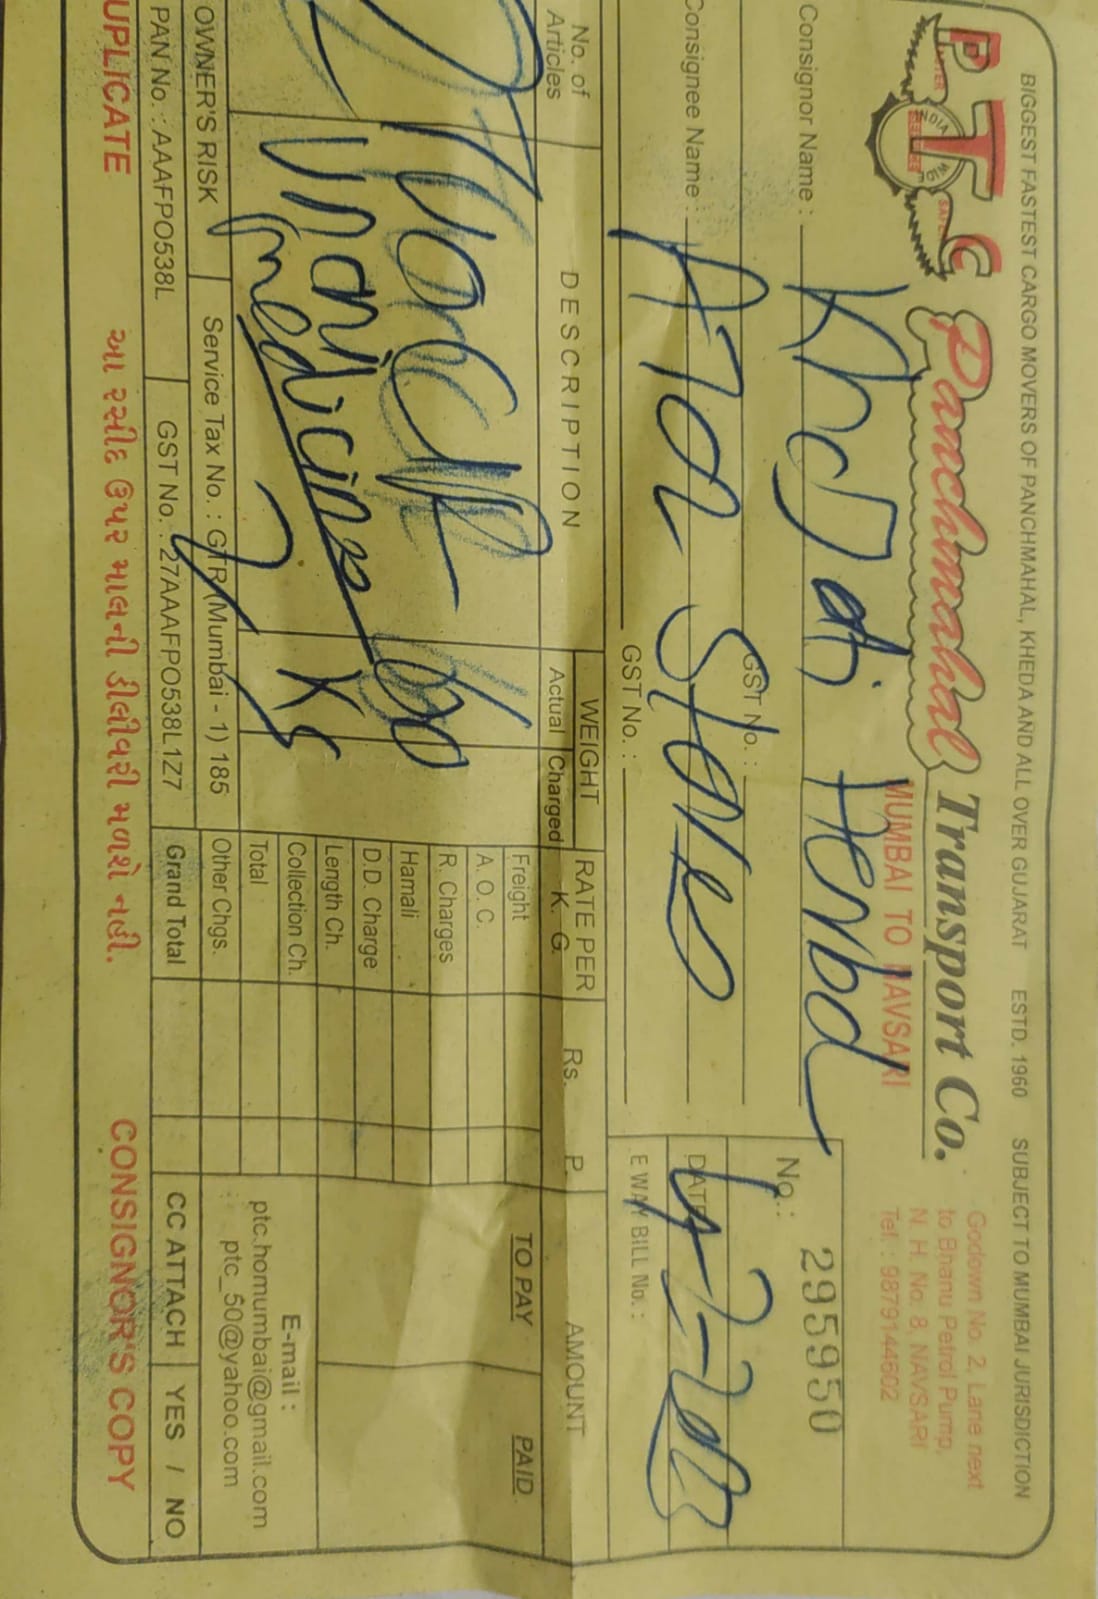 BIGGEST FASTEST CARGO MOVERS OF PANCHMAHAL, KHEDA AND ALL OVER GUJARAT ESTD. 1960 SUBJECT TO MUMBAI JURISDICTION
PTC Panchmahal Transport Co.
INDIA
MUMBAI TO NAVSARI
Godown No. 2, Lane next
to Bhanu Petrol Pump,
N. H. No. 8, NAVSARI
Tel. : 9879144602
Consignor Name :
GST No. :
No. : 295950
Consignee Name :
Store
DATE
GST No. :
E WAY BILL No. :
No. of Articles
DESCRIPTION
WEIGHT
Actual Charged
RATE PER K. G.
Rs. P.
AMOUNT
TO PAY PAID
Freight
A. O. C.
R. Charges
Hamali
D.D. Charge
Length Ch.
Collection Ch.
Total
Other Chgs.
Grand Total
Unani
medicine
E-mail :
ptc.homumbai@gmail.com
ptc_50@yahoo.com
OWNER'S RISK Service Tax No. : GTR (Mumbai - 1) 185
PAN No. : AAAFPO538L GST No. : 27AAAFPO538L1Z7
CC ATTACH YES / NO
UPLICATE આ રસીદ ઉપર માલની ડીલીવરી મળશે નહી. CONSIGNOR'S COPY